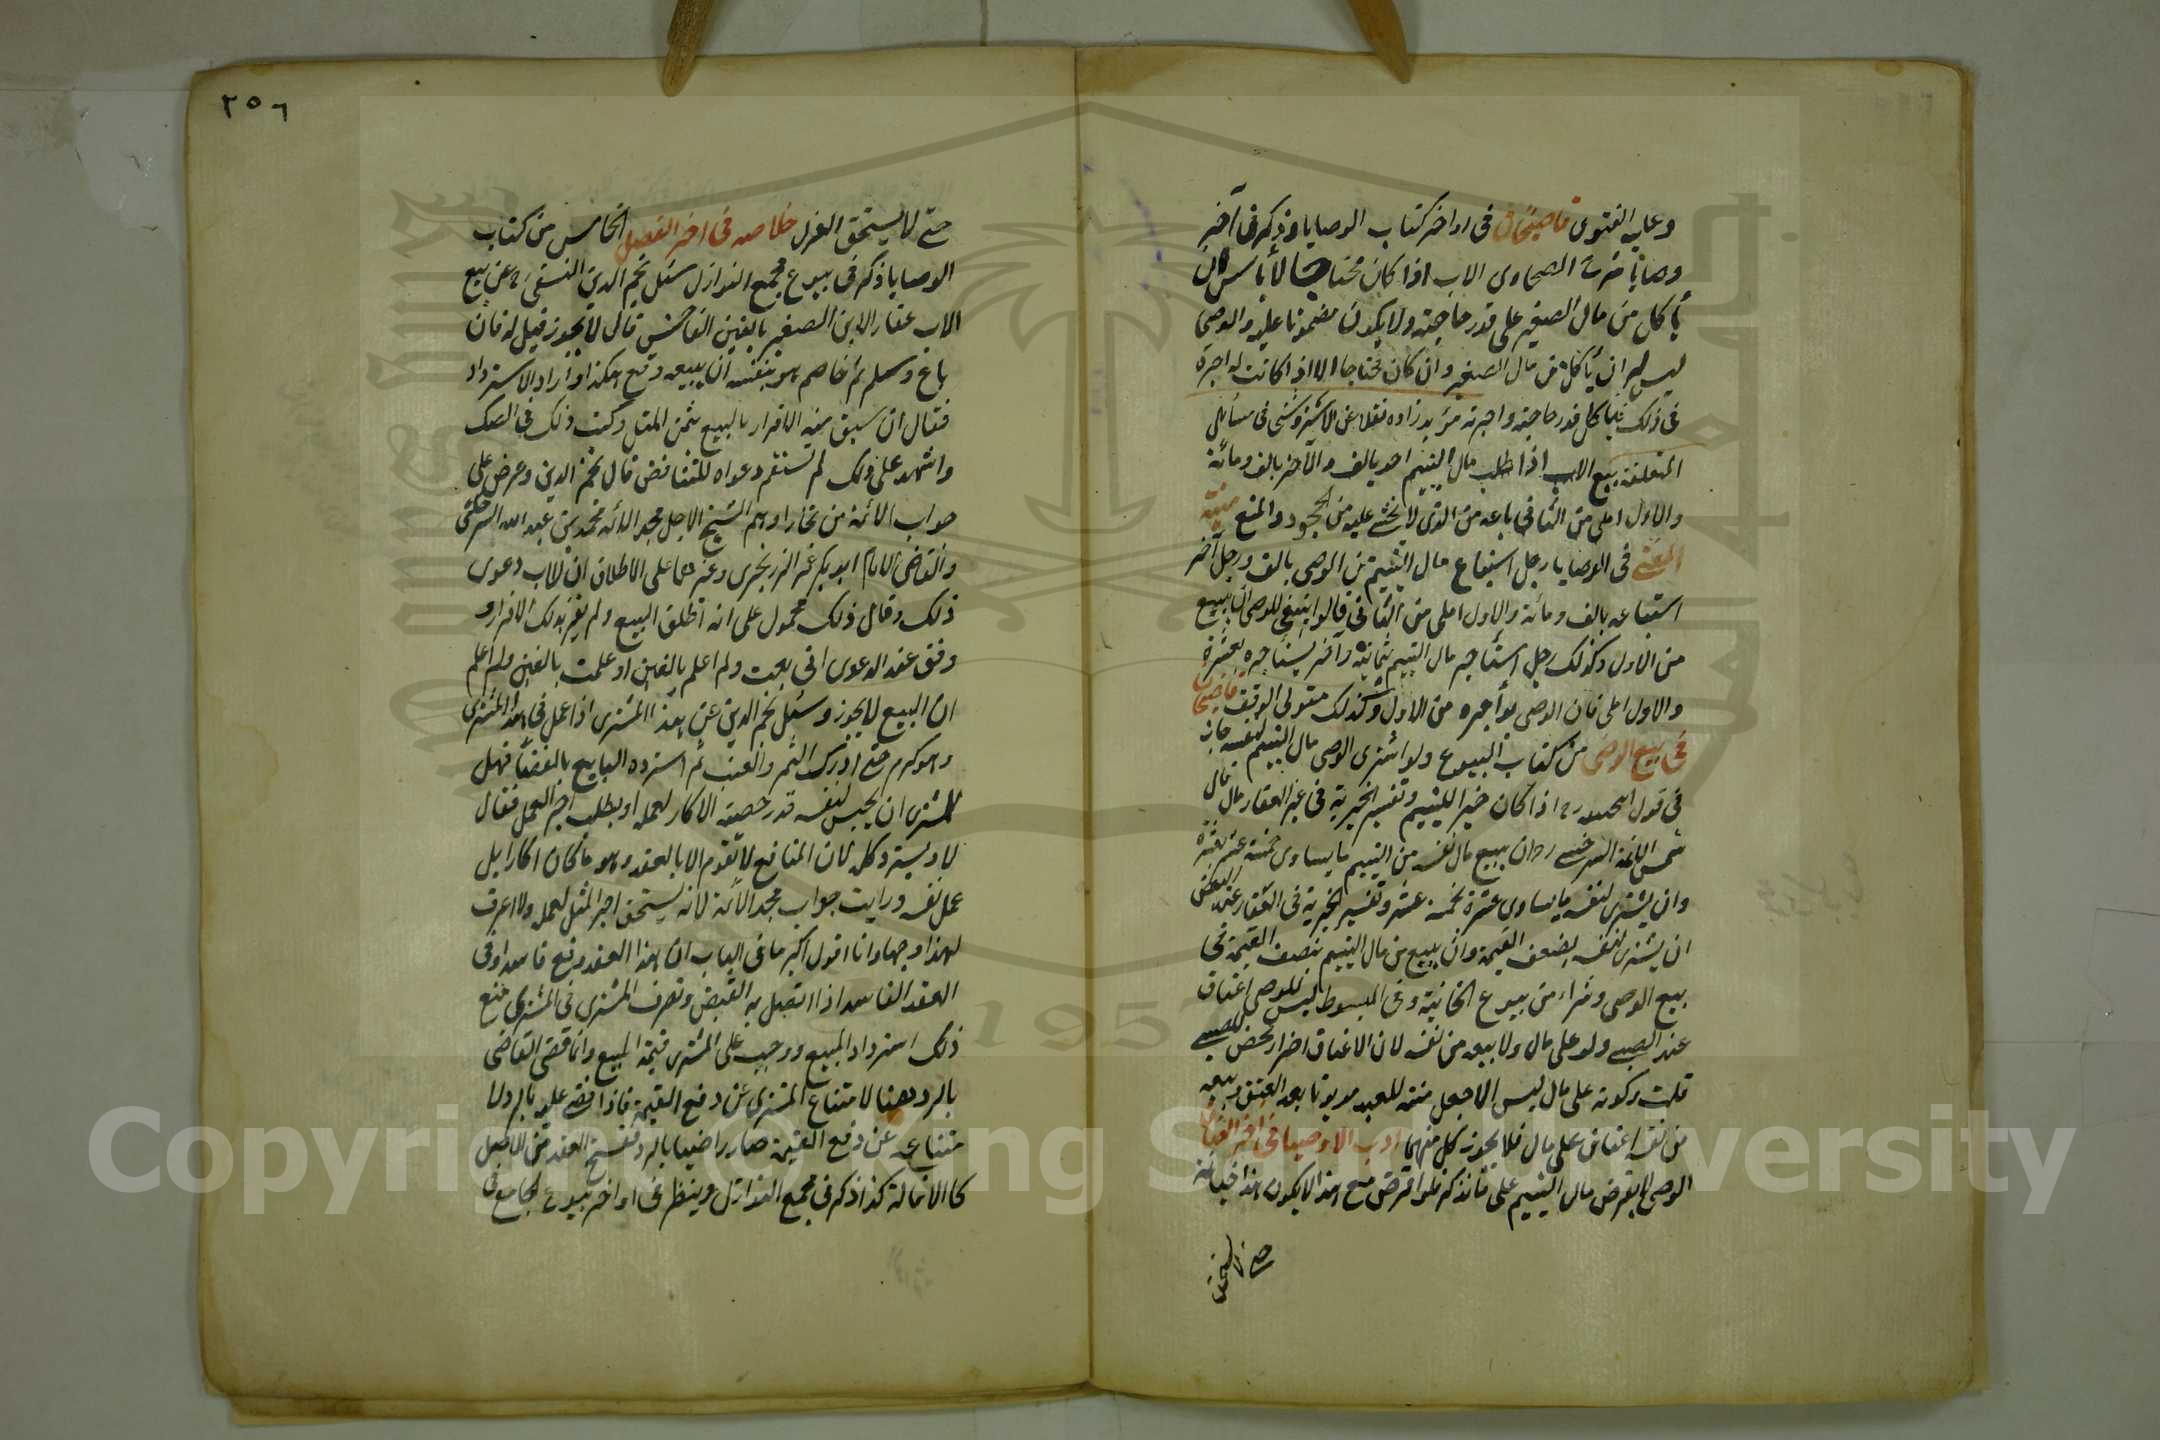 وعليه الفتوى قاضيخان في اواخر كتاب الوصايا وذكر في آخر
وصايا شرح الطحاوى الاب اذا كان محتاجا لا بأس بان
يأكل من مال الصغير على قدر حاجته ولا يكون مضمونا عليه والوصى
ليس له ان يأكل من مال الصغير وان كان محتاجا الا اذا كانت له اجرة
في ذلك فيأكل قدر حاجته واجرته مؤيد زاده نقلا عن الاستروشنى في مسائل
المتعلقة ببيع الاب اذا طلب مال اليتيم احد بالف والآخر بالف ومائة
والاول املى من الثانى باعه من الذى لا يخشى عليه من الجحود والمنع منية
المفتى في الوصايا رجل استباع مال اليتيم من الوصى بالف ورجل آخر
استباعه بالف ومائة والاول املى من الثانى قالوا ينبغى للوصى ان يبيع
من الاول وكذلك رجل استأجر مال اليتيم بثمانية وآخر يستأجره بعشرة
والاول املى فان الوصى يؤاجره من الاول وكذلك متولى الوقف قاضيخان
في بيع الوصى من كتاب البيوع ولو اشترى الوصى مال اليتيم لنفسه جاز
في قول ابى حنيفة رح اذا كان خيرا لليتيم وتفسير الخيرية في غير العقار قال
شمس الائمة السرخسى رح ان يبيع مال نفسه من اليتيم ما يساوى خمسة عشر بعشرة
وان يشترى لنفسه ما يساوى عشرة بخمسة عشر وتفسير الخيرية في العقار عند البعض
ان يشترى لنفسه بضعف القيمة وان يبيع من مال اليتيم بنصف القيمة في
بيع الوصى وشراءه من بيوع الخانية وفي المبسوط ليس للوصى اعتاق
عبد الصبى ولو على مال ولا بيعه من نفسه لان الاعتاق اضرار محض للصبى
قلت وكونه على مال ليس الا جعل منه للعبد مديونا بعد العتق وبيعه
من نفسه اعتاق على مال فلا يجوز كل منهما ادب الاوصيا في آخر
الوصى لا يقرض مال اليتيم على ما نذكر فلو اقرض مع هذا لا يكون هذا خيانة
حتى لا يستحق
٢٥٦
حتى لا يستحق العزل خلاصه في آخر الفصل الخامس من كتاب
الوصايا ذكر في بيوع مجمع النوازل سئل نجم الدين النسفى رح عن بيع
الاب عقار الابن الصغير بالغبن الفاحش قال لا يجوز قيل له فان
باع وسلم ثم خاصم هو بنفسه ان بيعه وقع هكذا واراد الاسترداد
فقال ان سبق منه الاقرار بالبيع بثمن المثل وكتب ذلك في الصك
واشهد على ذلك لم تستقم دعواه للتناقض قال نجم الدين وعرض على
جواب الائمة من بخارا وهم الشيخ الاجل مجد الائمة محمد بن عبد الله السرخكتى
والقاضى الامام ابو بكر الزرنجرى وغيرهما على الاطلاق ان للاب دعوى
ذلك وقال ذلك محمول على انه اطلق البيع ولم يقر بذلك الاقرار و
وفق عند الدعوى انى بعت ولم اعلم بالغبن او علمت بالغبن ولم اعلم
ان البيع لا يجوز وسئل نجم الدين عن هذا المشترى اذا عمل في هذا المشترى
وهو كرم حتى ادرك الثمر والعنب ثم استرده البايع بالقضاء فهل
للمشترى ان يحبس لنفسه قدر حصة الاكار لعمله او يطلب اجر العمل فقال
لا ويسترد كله لان المنافع لا تقوم الا بالعقد وهو ما كان اكارا بل
عمل لنفسه ورايت جواب مجد الائمة لانه يستحق اجر المثل لعمله ولا اعرف
لهذا وجها وانا اقول اكبر ما في الباب ان هذا العقد وقع فاسدا وفي
العقد الفاسد اذا اتصل به القبض وتصرف المشترى في المشترى منع
ذلك استرداد المبيع ووجب على المشترى قيمة المبيع وانما قضى القاضى
بالرد ههنا لامتناع المشترى عن دفع القيمة فاذا قضى عليه بالرد لا
متناعه عن دفع القيمة صار راضيا بالرد العقد من الاصل
كالاقالة كذا ذكر في مجمع النوازل وينظر في اواخر بيوع الجامع في
Copyright © King Saud University
1957